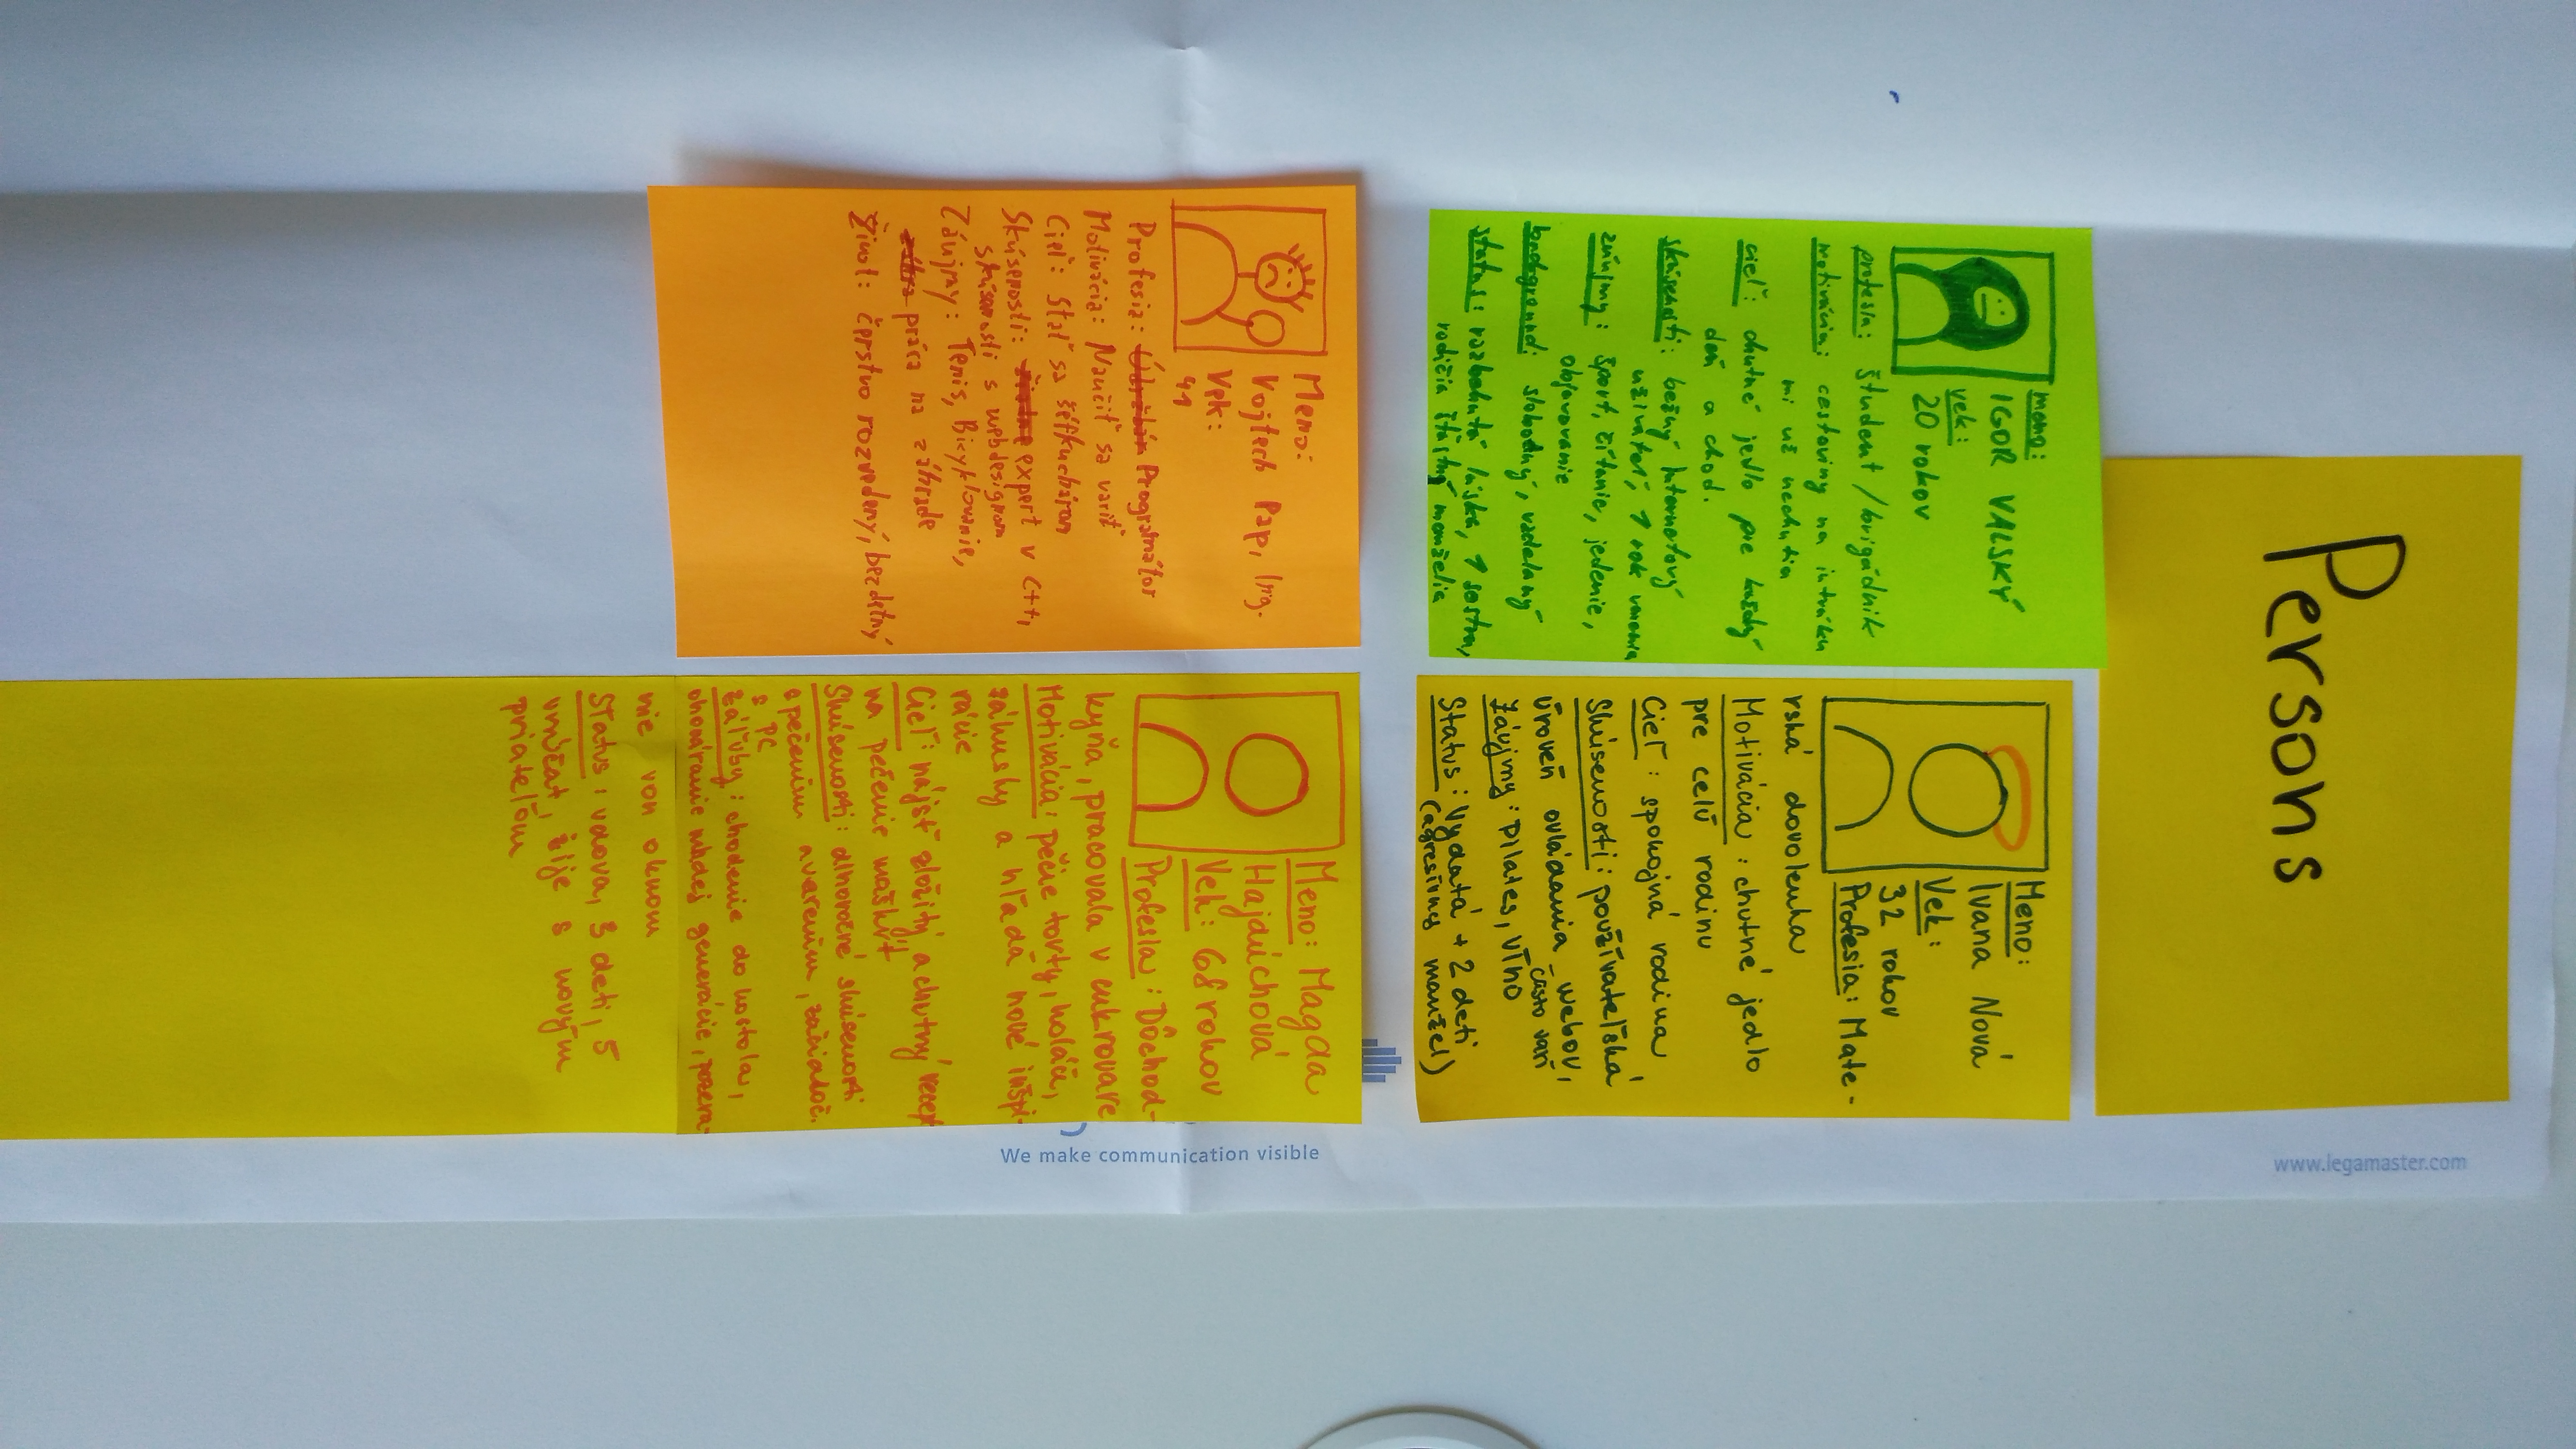 Persons
www.legamaster.com
meno:
IGOR VALSKÝ
vek:
20 rokov
profesia: študent / brigádnik
motivácia: cestoviny na intráku
mi už nechutia
cieľ: chutné jedlo pre každý
deň a chod.
skúsenosti: bežný internetový
užívateľ, 1 rok varenia
záujmy: šport, čítanie, jedenie,
objavovanie
background: slobodný, vzdelaný
status: rozbehnutá láska, 1 sestra,
rodičia šťastný manželia
Meno:
Ivana Nová
Vek:
32 rokov
Profesia: Mate-
rská dovolenka
Motivácia: chutné jedlo
pre celú rodinu
Cieľ: spokojná rodina
Skúsenosti: používateľská
úroveň ovládania webov,
často varí
Záujmy: pilates, víno
Status: Vydatá + 2 deti
(agresívny manžel)
Meno:
Vojtech Pap, Ing.
Vek:
41
Profesia: Údržbár Programátor
Motivácia: Naučiť sa variť
Cieľ: Stať sa šéfkuchárom
Skúsenosti: expert v C++,
skúsenosti s webdesignom
Záujmy: Tenis, Bicyklovanie,
záhra práca na záhrade
Život: čerstvo rozvedený, bezdetný
Meno: Magda
Hajdúchová
Vek: 68 rokov
Profesia: Dôchod-
kyňa, pracovala v cukrovare
Motivácia: pečie torty, koláče,
zákusky a hľadá nové inšpi-
rácie
Cieľ: nájsť zložitý a chutný recept
na pečenie maškŕt
Skúsenosti: dlhoročné skúsenosti
s pečením a varením, začiatoč.
s PC
Záľuby: chodenie do kostola,
ohováranie mladej generácie, pozera-
nie von oknom
Status: vdova, 3 deti, 5
vnúčat, žije s novým
priateľom
We make communication visible